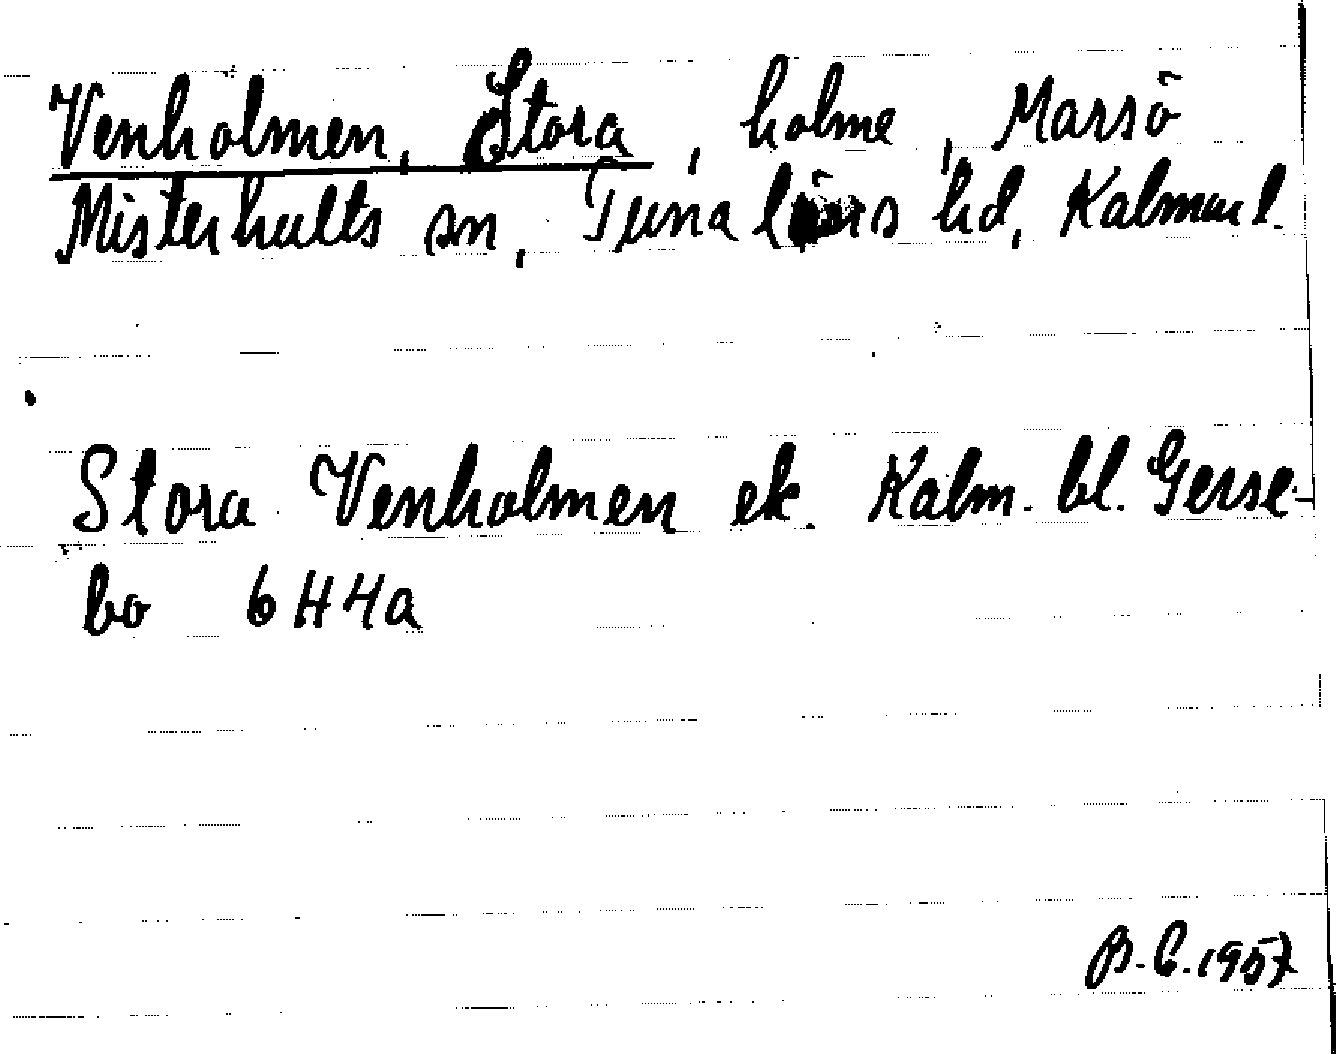 Venholmen, Stora, holme, Marsö
Misterhults sn, Tunaläns hd, Kalmar l.
Stora Venholmen ek. Kalm. bl. Gerse-
bo 6H4a
B.C. 1957